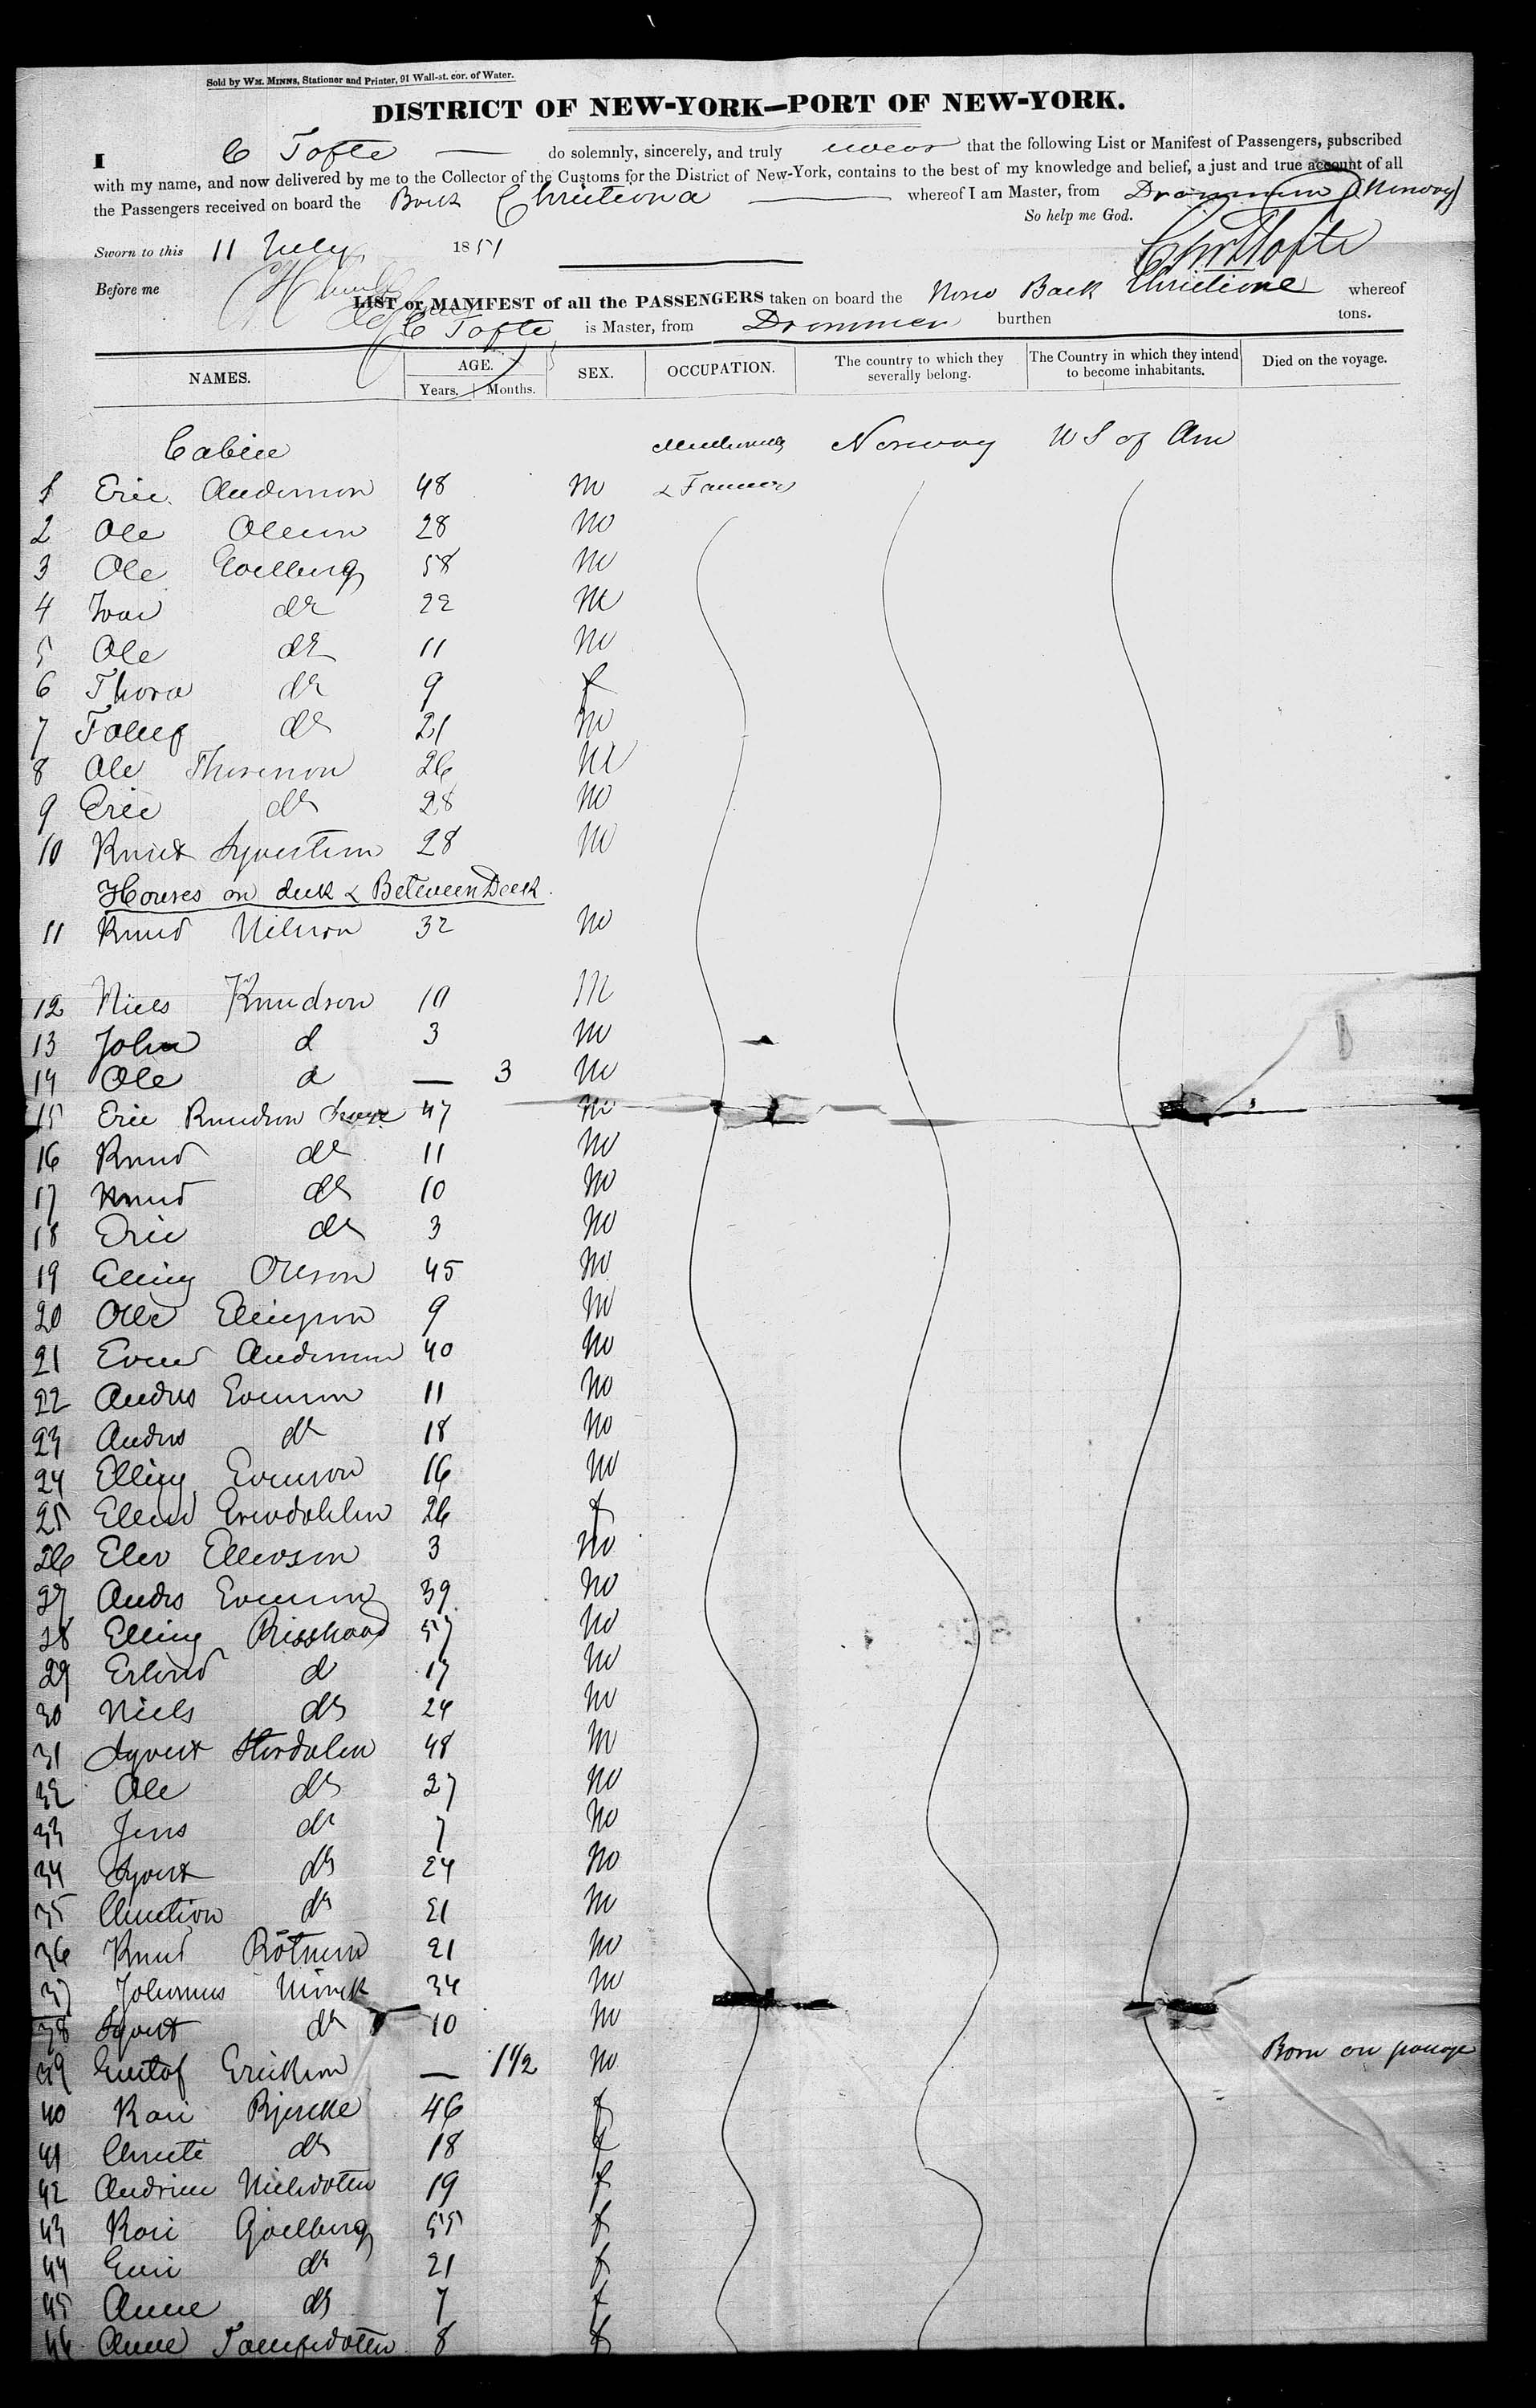 Sold by WM. MINNS, Stationer and Printer, 91 Wall-st. cor. of Water.
DISTRICT OF NEW-YORK—PORT OF NEW-YORK.
I C Tofte — do solemnly, sincerely, and truly swear that the following List or Manifest of Passengers, subscribed
with my name, and now delivered by me to the Collector of the Customs for the District of New-York, contains to the best of my knowledge and belief, a just and true account of all
the Passengers received on board the Bark Christiana — whereof I am Master, from Drammen (Norway)
So help me God.
Sworn to this 11 July 1851
Before me
LIST or MANIFEST of all the PASSENGERS taken on board the Norw Bark Christiane whereof
C Tofte is Master, from Drammen burthen tons.
NAMES. AGE. Years. Months. SEX. OCCUPATION. The country to which they severally belong. The Country in which they intend to become inhabitants. Died on the voyage.
Cabin Norway U S of Am
1 Eric Anderson 48 M & Farmers
2 Ole Oleson 28 M
3 Ole 58 M
4 Ivar do 22 M
5 Ole do 11 M
6 Thora do 9 f
7 do 21 M
8 Ole Thoreson 26 M
9 Eric do 28 M
10 Knut 28 M
Houses on deck & Between Deck
11 Knud Nilson 32 M
12 Niels Knudson 10 M
13 John d 3 M
14 Ole d — 3 M
15 Eric Knudson 47 M
16 Knud do 11 M
17 Knud do 10 M
18 Eric do 3 M
19 Elling Oleson 45 M
20 Ole Ellingson 9 M
21 Even Anderson 40 M
22 Andres Evenson 11 M
23 Andres do 18 M
24 Elling Evenson 16 M
25 26 f
26 3 M
27 Andrs Evenson 39 M
28 Elling 57 M
29 Erlend d 17 M
30 Niels do 24 M
31 Syvert 48 M
32 Ole do 27 M
33 Jens do 7 M
34 Syvert do 24 M
35 Christian do 21 M
36 Knud 21 M
37 Johannes 34 M
38 Syvert do 10 M
39 Gustof Erickson — 1 1/2 M Born on passage
40 Kari Bjercke 46 f
41 Christi do 18 f
42 Nielsdotter 19 f
43 Kari 55 f
44 do 21 f
45 Anne do 7 f
46 Anne 8 f